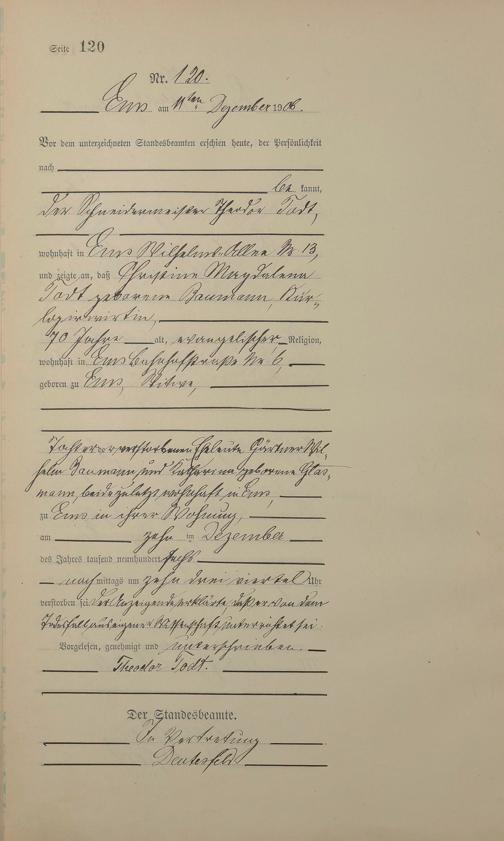 Seite 120
Nr. 120.
Ems am 11ten Dezember 1906.
Vor dem unterzeichneten Standesbeamten erschien heute, der Persönlichkeit
nach
be kannt,
der Schneidermeister Theodor Todt,
wohnhaft in Ems Wilhelms-Allee No 13,
und zeigte an, daß Christine Magdalena
Todt geborene Baumann, Kur-
logirwirtin,
70 Jahre alt, evangelischer Religion,
wohnhaft in Ems Bahnhofstraße No 6,
geboren zu Ems, Witwe,
Tochter der verstorbenen Eheleute Gärtner Wil-
helm Baumann und Katharina geborene Glas-
mann, beide zuletzt wohnhaft in Ems,
zu Ems in ihrer Wohnung,
am zehn ten Dezember
des Jahres tausend neunhundert sechs
nachmittags um zehn drei viertel Uhr
verstorben sei. Der Anzeigende erklärte, daß er von dem
Todesfall aus eigener Wissenschaft unterrichtet sei.
Vorgelesen, genehmigt und unterschrieben.
Theodor Todt.
Der Standesbeamte.
In Vertretung